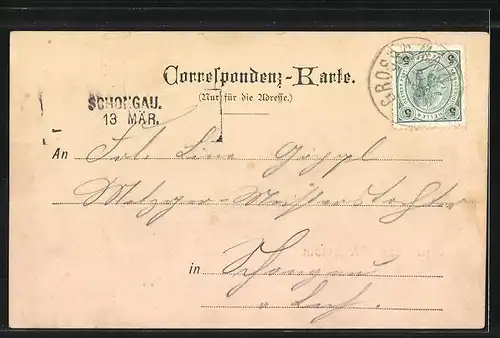 Correspondenz-Karte.
(Nur für die Adresse.)
SCHONGAU.
13 MÄR.
An Frl. Lina
Metzger-Meisters tochter
in Schongau
a Lech.
5 5
5 5